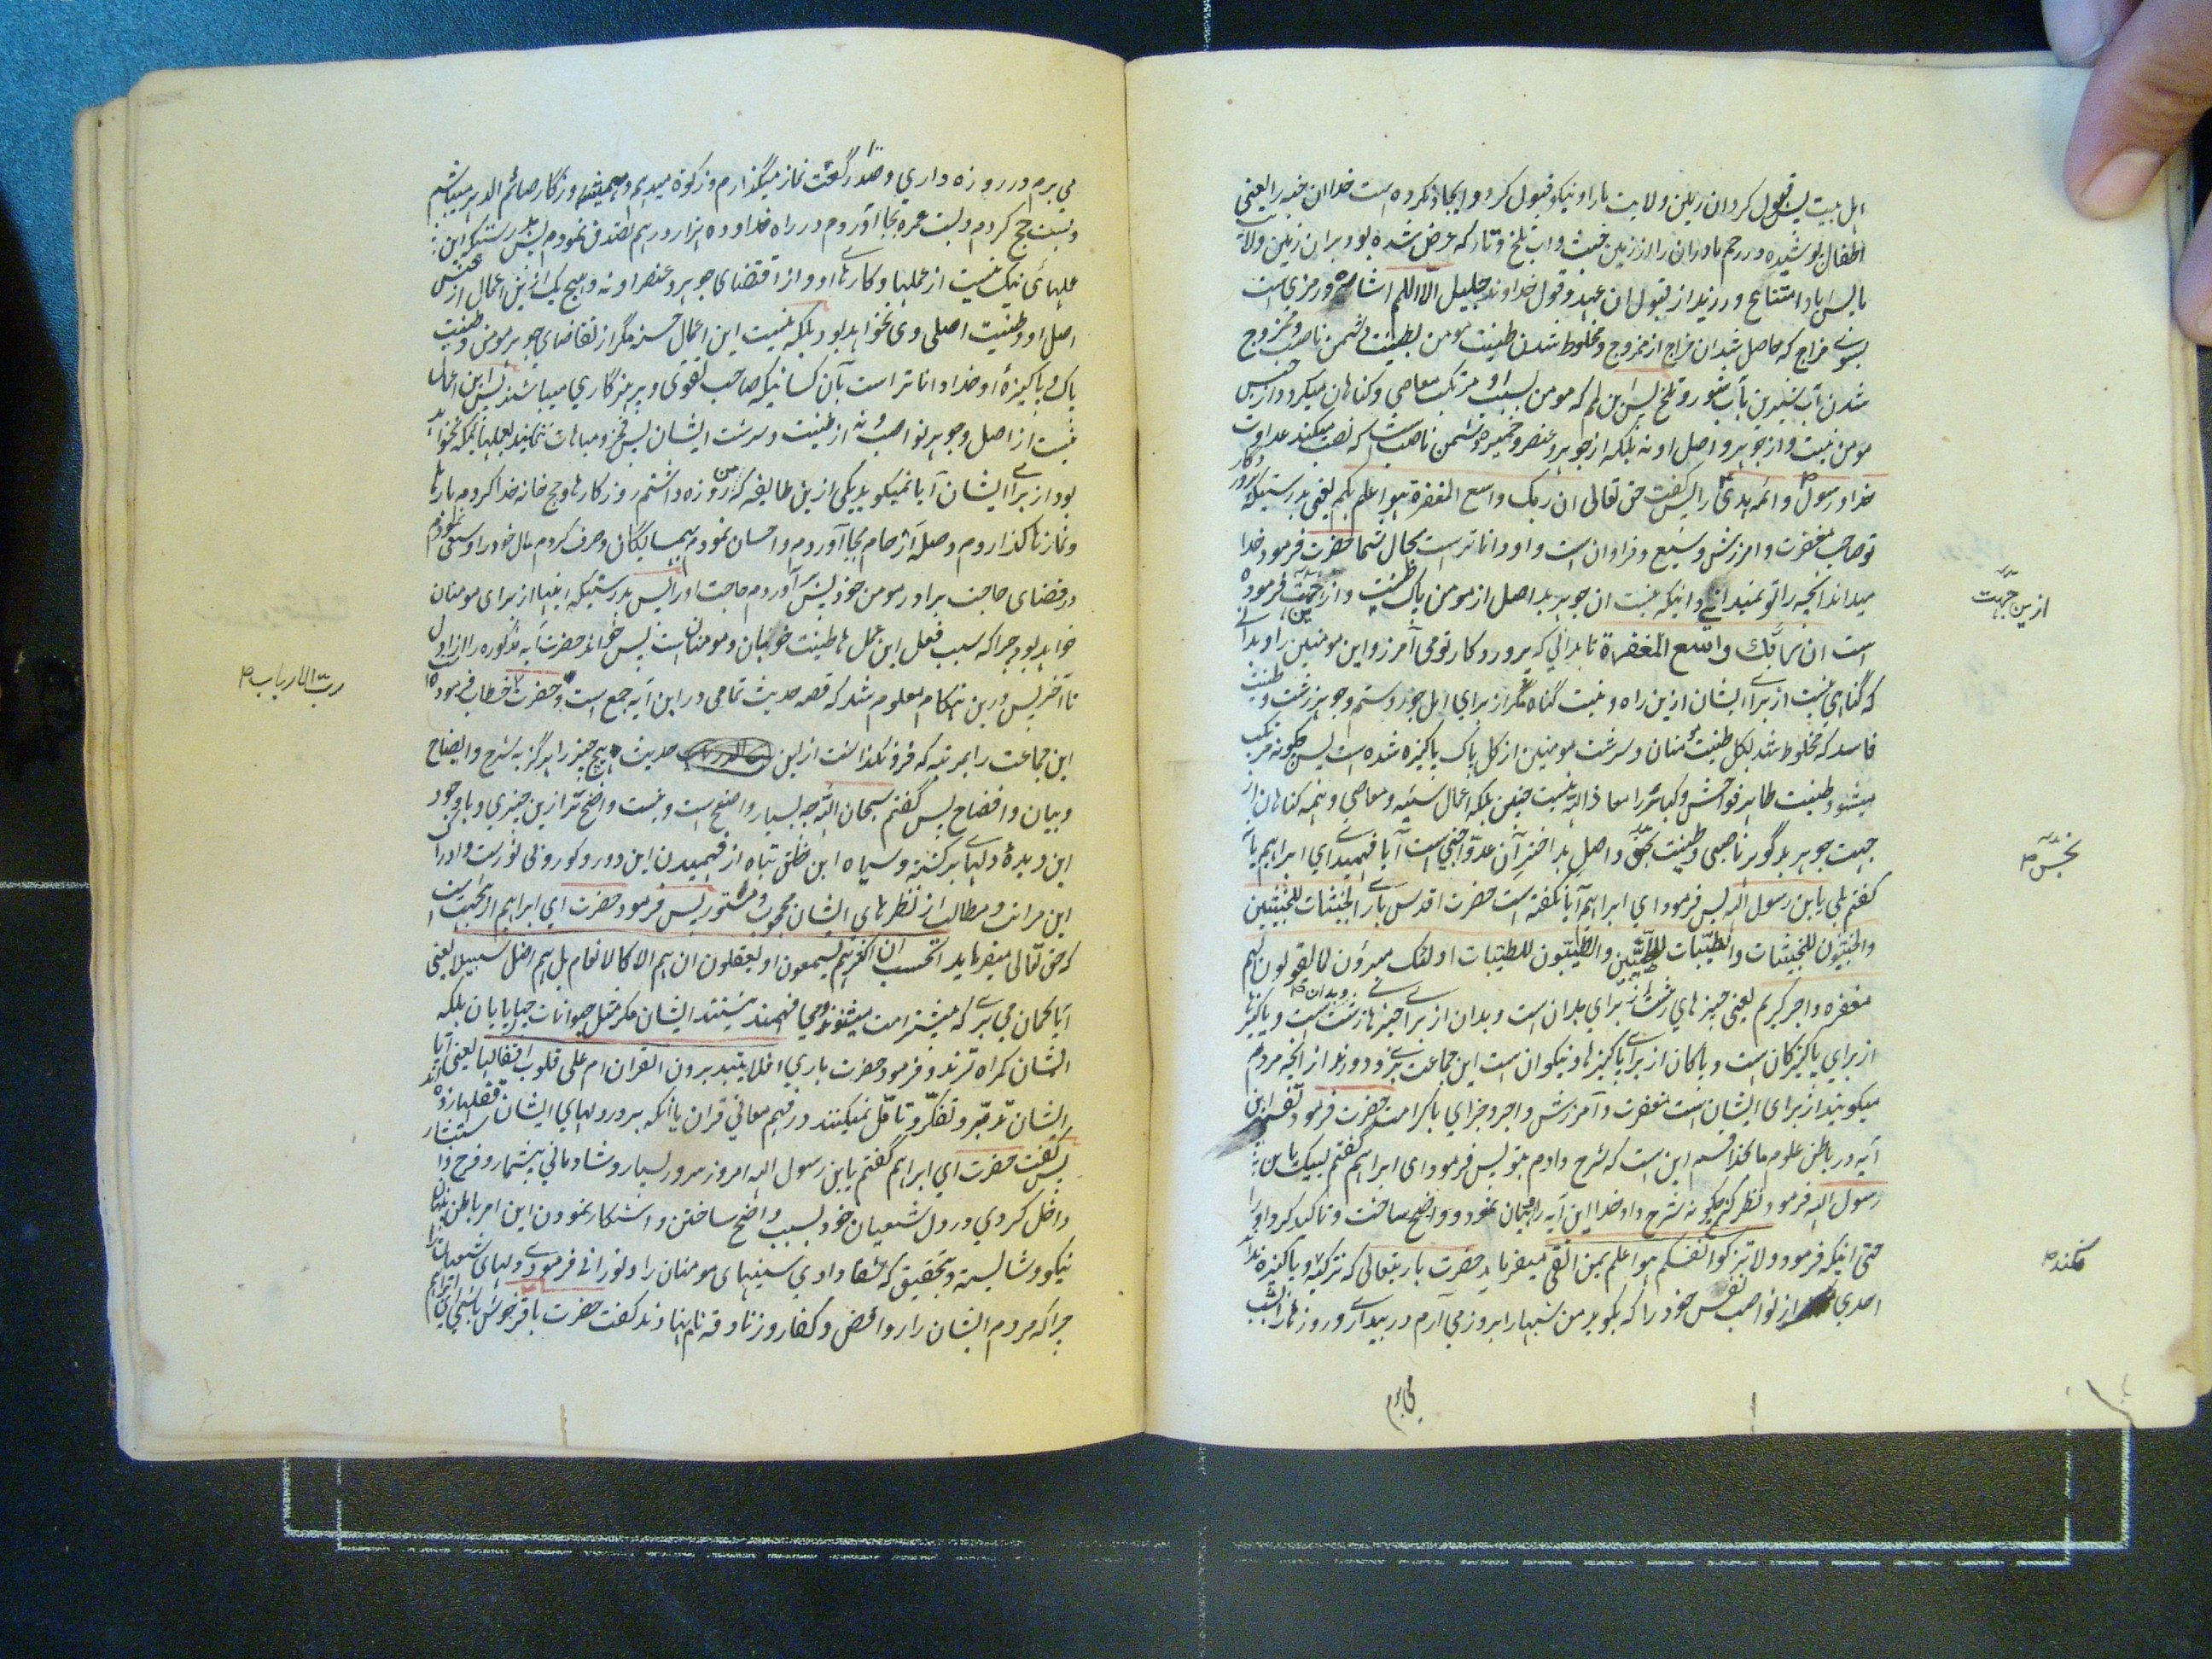 اهل بیت پس قبول کردان زمین ولایت ما را و نیکو قبول کرد و ایجاد کرده است خدا ان خنه را یعنی
اطفال پوشیده در رحم مادران را از زمین خبیث و اب تلخ و تار که عرض شده بود بر ان زمین ولایت
ما پس ابا و امتناع ورزید از قبول ان عهد و قول خداوند جلیل الا اللمم اشاره و رمزی است
بسوی مزاج که حاصل شد ان مزاج از ممزوج و مخلوط شدن طینت مومن بطینت دشمن ناصب و ممزوج
شدن آب شیرین بآب شور و تلخ پس این لمم که مومن بسبب او مرتکب معاصی و کناهان میکردد از جنس
مومن نیست و از جوهر و اصل او نه بلکه از جوهر و عنصر و خمیره دشمن ناصب است که نصب میکند عداوت
خدا و رسول و ائمه هدی را پس کفت حق تعالی ان ربک واسع المغفرة هو اعلم بکم یعنی بدرستیکه پروردکار
تو صاحب مغفرت و امرزش وسیع و فراوان است و او داناتر است بحال شما حضرت فرمود خدا
میداند انچه را تو نمیدانی و انیکه نیست ان جوهر بد اصل از مومن پاک طینت و از فرموده
است ان ربک واسع المغفرة تا بدانی که پروردکار تو می آمرزد این مومنین را و بدانی
که گناهی نیست از برای ایشان ازین راه و نیست گناه مگر از برای اهل جور و ستم و جوهر زشت و طینت
فاسد که مخلوط شد بکل طینت منان و سرشت مومنین از کل پاک پاکیزه شده است پس چکونه مرتکب
میشود طینت طاهر فواحش و کبائر را معاذ الله نیست چنین بلکه اعمال سیئه و معاصی و همه کناهان از
جهت جوهر بد گوهر ناصبی و طینت و اصل بد اختر آن عدو اجنبی است آیا فهمیدی ای ابراهیم یا نه
کفتم بلی یابن رسول الله پس فرمود ای ابراهیم آیا نکفته است حضرت اقدس باری الخبیثات للخبیثین
والخبیثون للخبیثات والطیبات للطیبین والطیبون للطیبات اولئک مبرؤن مما یقولون لهم
مغفره و اجر کریم یعنی چیزهای زشت از برای بدان است و بدان از برای چیزهای زشت است و پاکیزها
از برای پاکیزکان است و پاکان از برای پاکیزها و نیکوان است این جماعت بری و دورند از انچه مردم
میکویند از برای ایشان است مغفرت و آمرزش و اجر و جزای باکرامت حضرت فرمود تفسیر این
آیه در باطن علوم ما بحذافیره این است که شرح دادم بتو پس فرمود ای ابراهیم کفتم لبیک یابن
رسول الله فرمود نظر کن چکونه شرح داد خدا این آیه را و بیان نمود و واضح ساخت و تاکید کرد او را
حتی انیکه فرمود ولا تزکوا انفسکم هو اعلم بمن اتقی میفرماید حضرت باریتعالی که تزکیه و پاکیزه نداند
احدی از نواصب نفس خود را که بکوید من شبها را بروز می آرم در بیداری و روزها را بشب
می برم
ازین جهت
نجس
نکند
می برم در روزه داری و گفت نماز میگذارم و زکوة میدهم و همیشه روزکار صائم الدهر میباشم
و بیست حج کردم و بیست عمره بجا آوردم در راه خدا و ده هزار درهم تصدق نمودم پس بدرستیکه این
عملهای نیک نیست از عملها و کارهای او و از اقتضای جوهر و عنصر او نه و هیچ یک ازین اعمال از جنس
اصل او و طینت اصلی وی نخواهد بود بلکه نیست این اعمال حسنه مگر از تقاضای جوهر مومن و طینت
پاک و پاکیزۀ او خدا داناتر است بآن کسانیکه صاحب تقوی و پرهیزگاری میباشند پس این اعمال
نیست از اصل و جوهر نواصب و نه از طینت و سرشت ایشان پس فخر و مباهات نکنند بعملهائیکه نخواهد
بود از برای ایشان آیا نمیکوید یکی ازین طایفه که من روزه داشتم روزکارها و حج خانه خدا کردم بارها
و نمازها کذاردم و صلۀ ارحام بجا آوردم و احسان نمودم بهمسایکان و صرف کردم مال خود را و سعی نمودم
در قضای حاجت برادر مومن خود پس بر آوردم حاجت او را پس بدرستیکه اینها از برای مومنان
خواهد بود چرا که سبب فعل این عمل ها طینت خوبان و مومنان است پس خواند حضرت آیه مذکوره را از اول
تا آخر پس درین هنکام معلوم شد که قصه حدیث تمامی در این آیه جمع است و حضرت خطاب فرمود
این جماعت را بمرتبه که فرو نکذاشت ازین حدیث هیچ چیز را هرگز به شرح و ایضاح
و بیان و افضاح پس گفتم سبحان الله چه بسیار واضح است و نیست واضح تر ازین چیزی و با وجود
این دیدۀ دلهای برکشته و سیاه این خلق تباه از فهمیدن این دور و کور و نی نور است و ادراک
این مراتب و مطالب از نظرهای ایشان محجوب و مستور پس فرمود حضرت ای ابراهیم ازینجهت است
که حق تعالی میفرماید اتحسب ان اکثرهم یسمعون او یعقلون ان هم الا کالانعام بل هم اضل سبیلا یعنی
آیا کمان می بری که بیشتر امت میشنوند و می فهمند نیستند ایشان مکر مثل حیوانات چهارپایان بلکه
ایشان کمراه ترند و فرمود حضرت باری افلا یتدبرون القران ام علی قلوب اقفالها یعنی آیا
ایشان تدبر و تفکر و تامل نمیکنند در فهم معانی قران یا انکه بر در دلهای ایشان قفلها زده اند
پس کفت حضرت ای ابراهیم گفتم یابن رسول الله امروز سرور بسیار و شادمانی بیشمار و فرح و استبشار
داخل کردی در دل شیعیان خود بسبب واضح ساختن و اشکار نمودن این امر باطن پنهان
نیکو و شایسته و بتحقیق که شفا دادی سینهای مومنان را و نورانی فرمودی دلهای شیعیان را
چرا که مردم ایشان را روافض و کفار و زنادقه نام نهادند کفت حضرت باقر خوش باش ای ابراهیم
ربّ الارباب